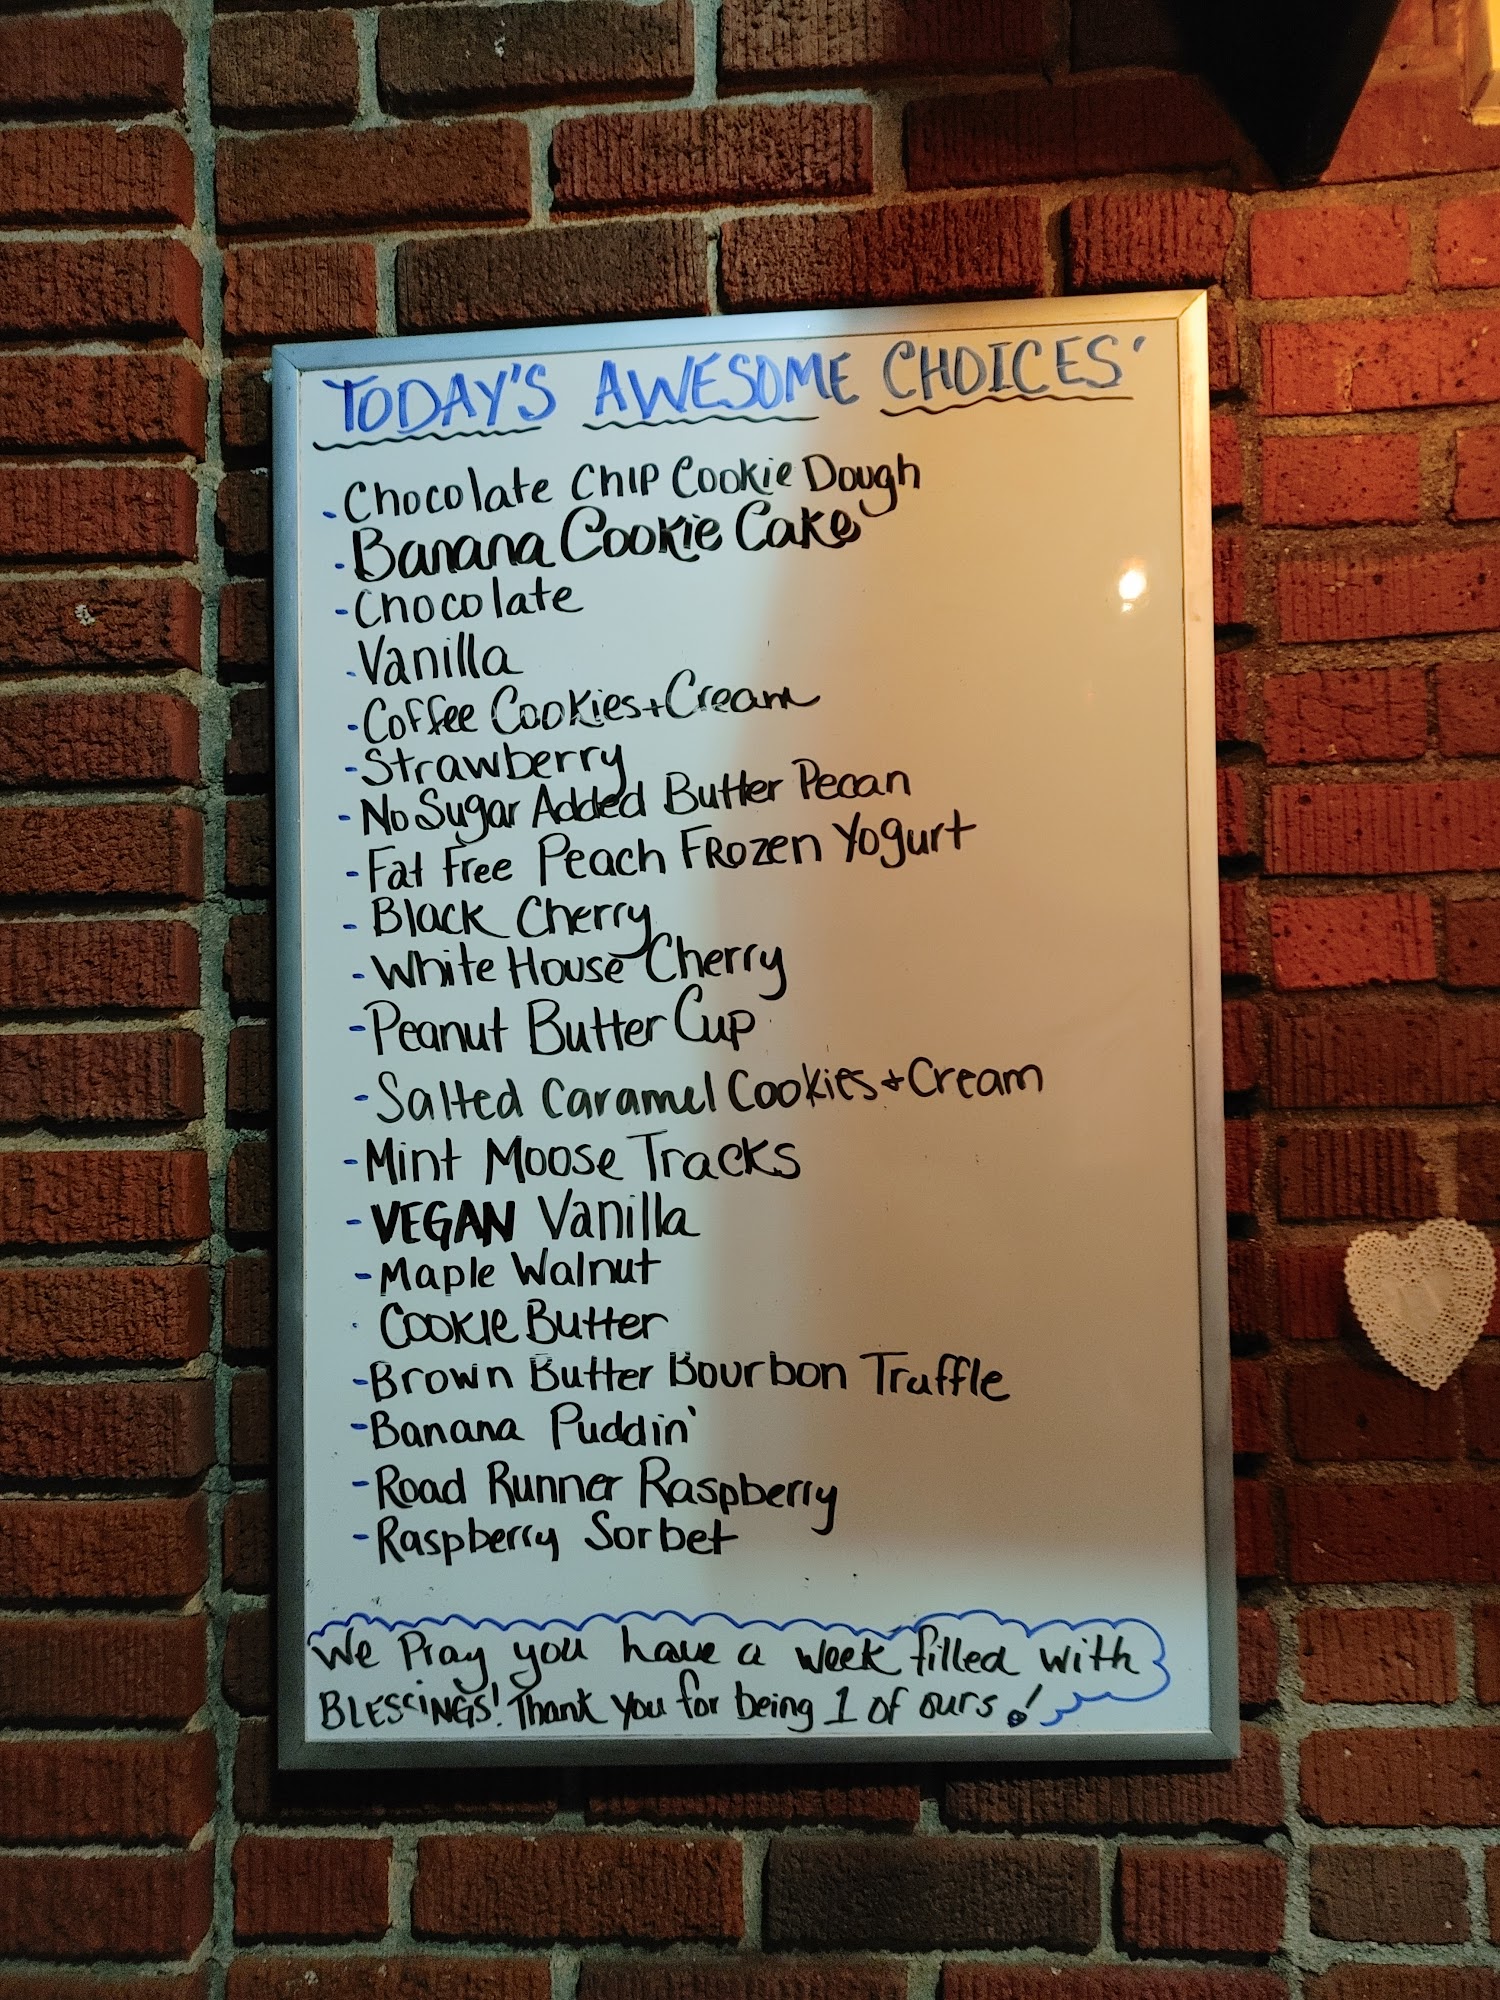 TODAY'S AWESOME CHOICES'
-Chocolate Chip Cookie Dough
-Banana Cookie Cake
-Chocolate
-Vanilla
-Coffee Cookies+Cream
-Strawberry
-No Sugar Added Butter Pecan
-Fat Free Peach Frozen Yogurt
-Black Cherry
-White House Cherry
-Peanut Butter Cup
-Salted Caramel Cookies+Cream
-Mint Moose Tracks
-VEGAN Vanilla
-Maple Walnut
· Cookie Butter
-Brown Butter Bourbon Truffle
-Banana Puddin'
-Road Runner Raspberry
-Raspberry Sorbet
We Pray you have a week filled with
BLESSINGS! Thank you for being 1 of ours!